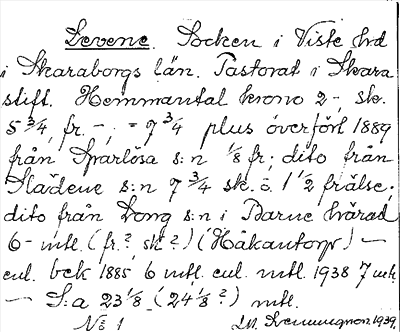 Levene. Socken i Viste hrd
i Skaraborgs län. Pastorat i Skara
stift. Hemmantal krono 2-, sk.
5 3/4, fr. -, = 7 3/4 plus överfört 1889
från Sparlösa s:n 1/8 fr; dito från
Slädene s:n 7 3/4 sk. o. 1 1/2 frälse;
dito från Long s:n i Barne härad
6- mtl. (fr.? sk?) (Håkantorp) —
enl. bek 1885 6 mtl. enl. mtl. 1938 7 mtl.
— S:a 23 1/8 (24 1/8?) mtl.
No 1 1939